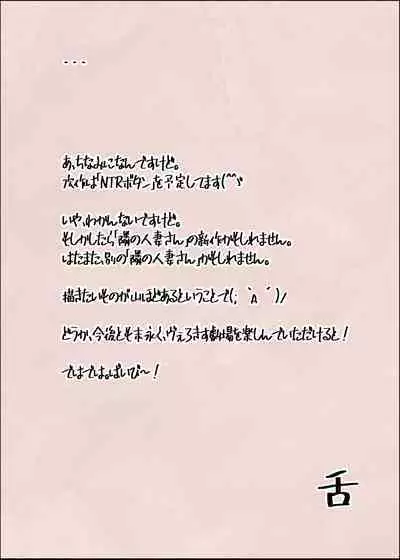 ・・・
あ、ちなみにこなんですけど。
次作は「NTRボタン」を予定してます(^^ゞ
いや、わかんないですけど。
もしかしたら「隣の人妻さん」の新作かもしれません。
はたまた、別の「隣の人妻さん」かもしれません。
描きたいものが山ほどあるということで(；｀Д´)ﾉ
どうか、今後とも末永く、ヴェろきす劇場を楽しんでいただけると！
ではでは。ばいび～！
舌